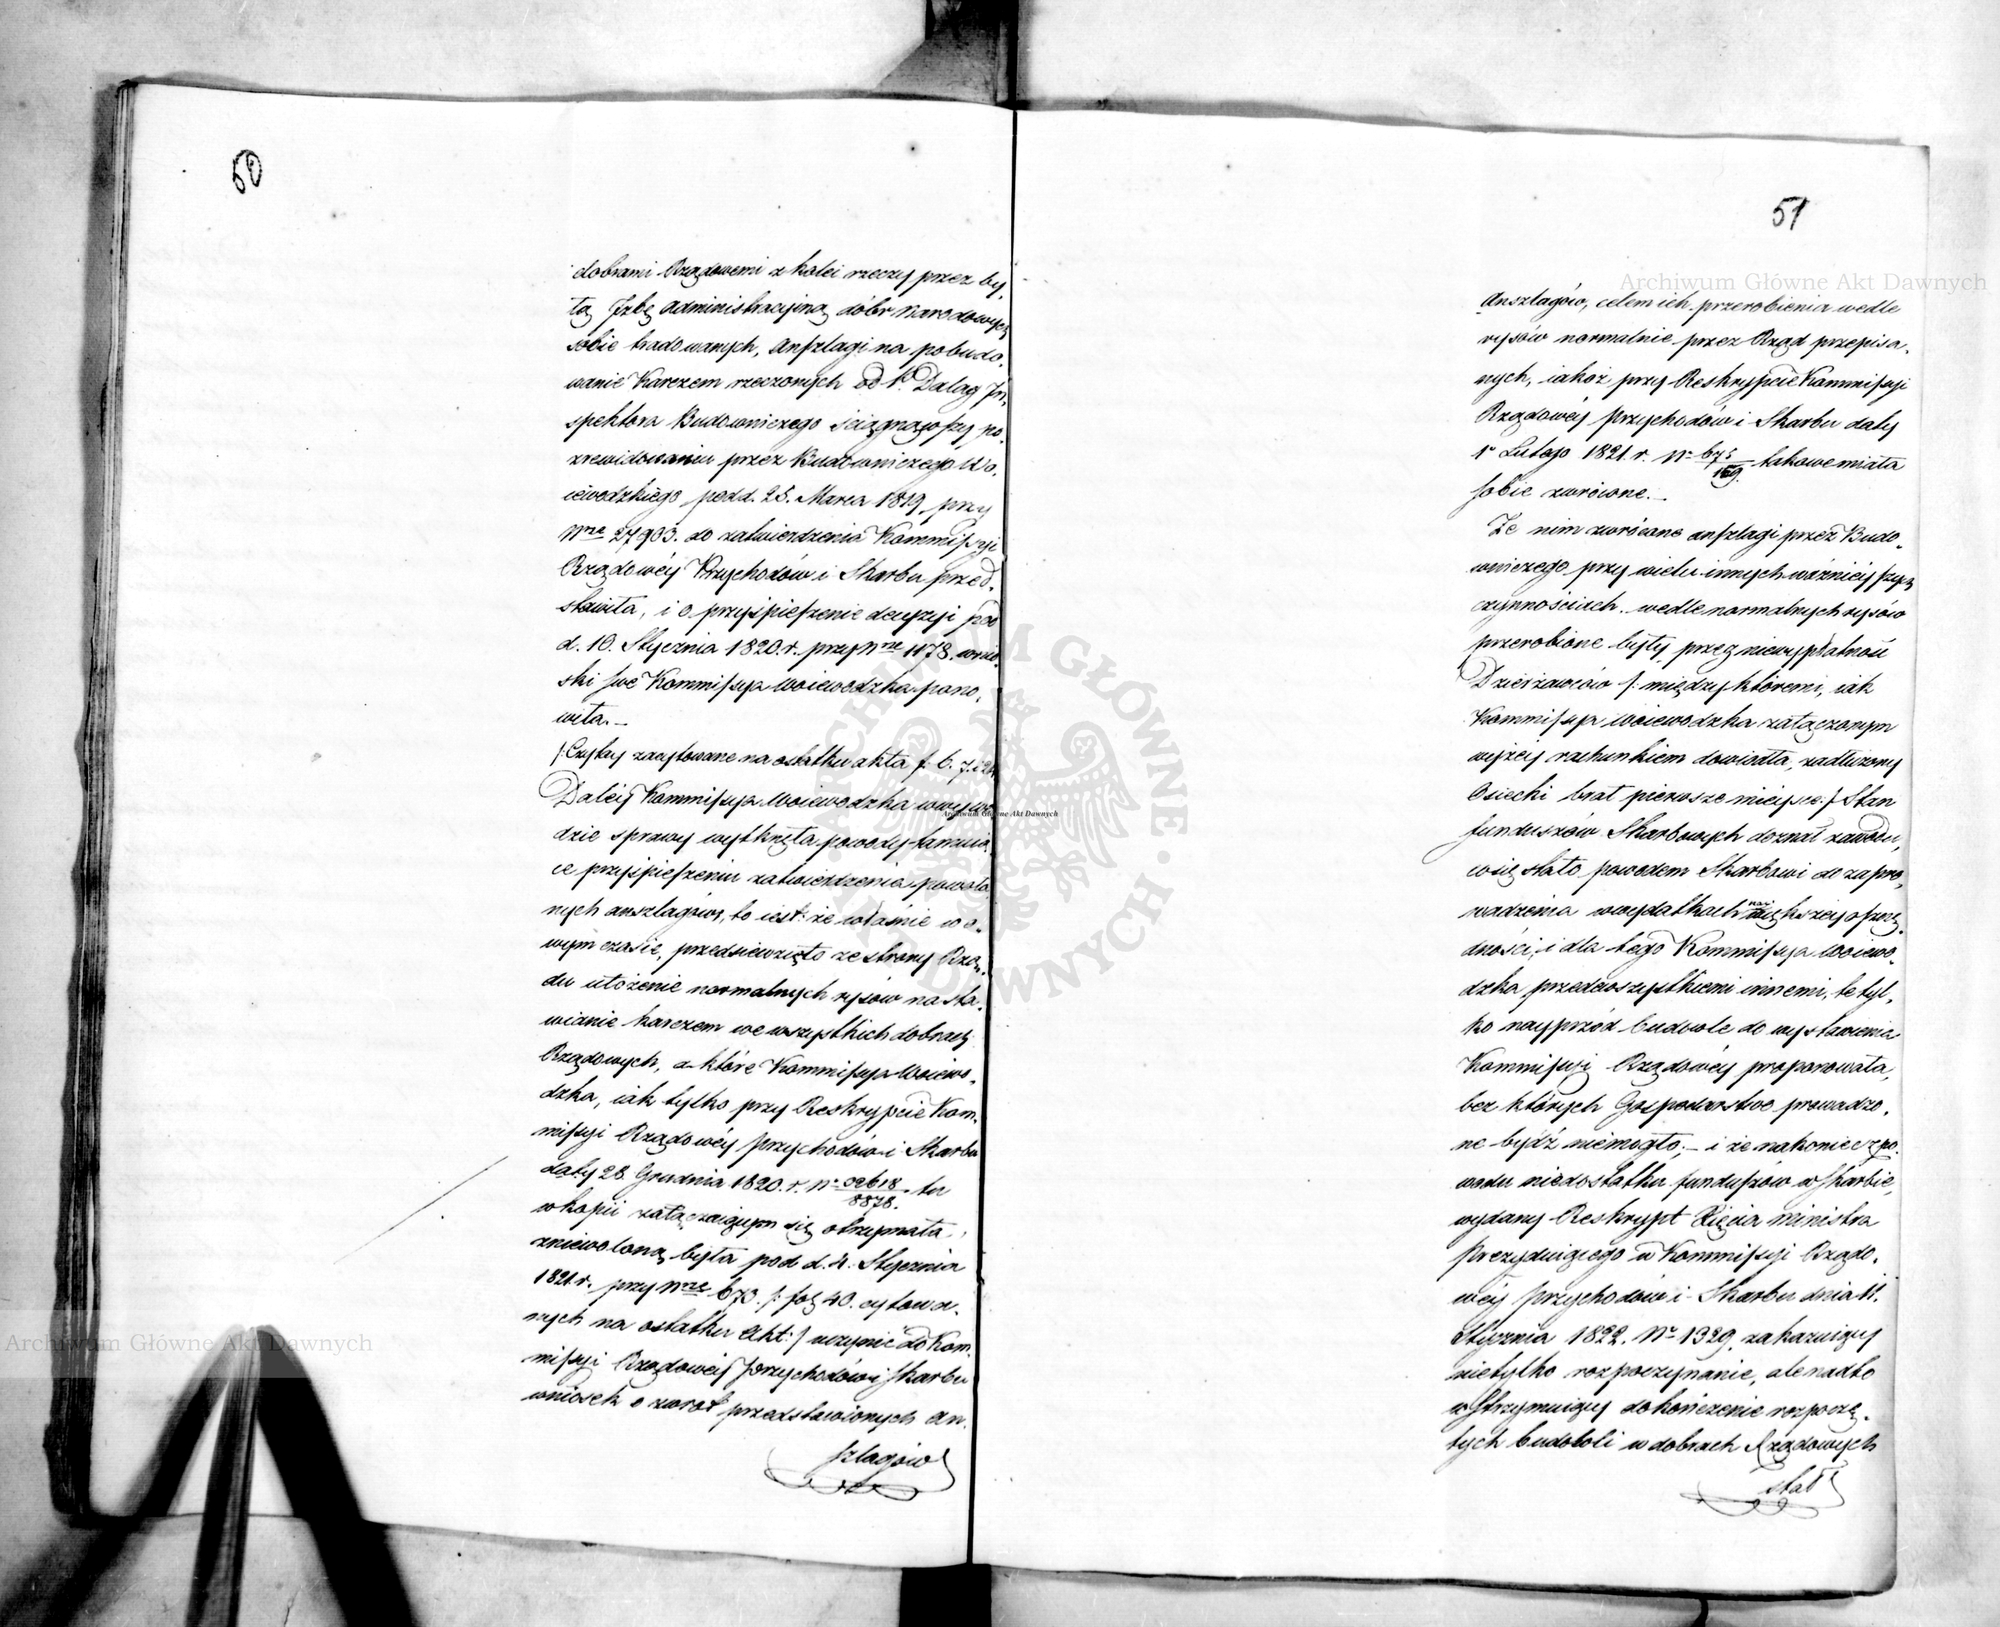 50
dobrami Rządowemi z kolei rzeczy przez by,
łą Jzbę Administracyjną dóbr Narodowych
sobie tradowanych, Anszlagi na pobudo,
wanie Karczem rzeczonych od P. Dalag Jn,
spektora Budowniczego ściągnąwszy po
zrewidowaniu przez Budowniczego Wo,
iewodzkiego pod d. 25. Marca 1819 przy
Nrze 27903. do zatwierdzenia Kommissyi
Rządowéy Przychodów i Skarbu przed,
stawiła, i o przyśpieszenie decyzyi pod
d. 10. Stycznia 1820. r. przy Nrze 1178. wnio,
ski swe Kommissya Woiewodzka pono,
wiła.
/: Czyliby zacytowane na ostatku akta f: 6. 7. i 24
Daléy Kommissya Woiewodzka w wywo
dzie sprawy wytknęła powody tamuią,
ce przyśpieszeniu zatwierdzenia powoła
nych anszlagów, to iest: że właśnie w o,
wym czasie, przedsiewzięto ze strony Rzą,
du ułożenie normalnych rysów na sta,
wianie karczem we wszystkich dobrach
Rządowych, a które Kommissya Woiewo,
dzka, iak tylko przy Reskrypcie Kom,
missyi Rządowéy Przychodów i Skarbu
daty 28. Grudnia 1820. r. No 92618/8878. tu
w kopii załączaiącym się otrzymała,
zniewoloną była pod d. 4. Stycznia
1821. r. przy Nrze 673. /: fol 40. cytowa,
nych na ostatku Akt :/ uczynić do Kom,
missyi Rządowéy Przychodów i Skarbu
wniosek o zwrot przedstawionych An,
szlagów
51
Anszlagów, celem ich przerobienia wedle
rysów normalnie przez Rząd przepisa,
nych, iakoż przy Reskrypcie Kommissyi
Rządowéy Przychodów i Skarbu daty
1o Lutego 1821. r. No 675/159. takowe miała
sobie zwrócone.
Że nim zwrócone anszlagi przez Budo,
wniczego przy wielu innych ważnieyszych
czynnościach wedle normalnych rysów
przerobione były, przez niewypłatność
Dzierżawców /: między któremi, iak
Kommissya Woiewodzka załączonym
wyżéy rachunkiem dowiodła, zadłużony
Osiecki brał pierwsze mieysce :/ Stan
funduszów Skarbowych doznał zawodu,
co się stało powodem Skarbowi do zapro,
wadzenia w wydatkach naywiększéy oszczę,
dności, i dla tego Kommissya Woiewo,
dzka przedewszystkiemi innemi, te tyl,
ko nayprzód budowle do wystawienia
Kommissyi Rządowéy proponowała,
bez których Gospodarstwo prowadzo,
ne bydź niemogło; i że nakoniec z po,
wodu niedostatku funduszów w Skarbie,
wydany Reskrypt Xięcia Ministra
Prezyduiącego w Kommissyi Rządo,
wéy Przychodów i Skarbu dnia 11.
Stycznia 1822. No 1329. zakazuiący
nietylko rozpoczynanie, ale nadto
wstrzymuiący dokończenie rozpoczę,
tych budowli w dobrach Rządowych
stał
Archiwum Główne Akt Dawnych
Archiwum Główne Akt Dawnych
Archiwum Główne Akt Dawnych
ARCHIWUM GŁÓWNE AKT DAWNYCH